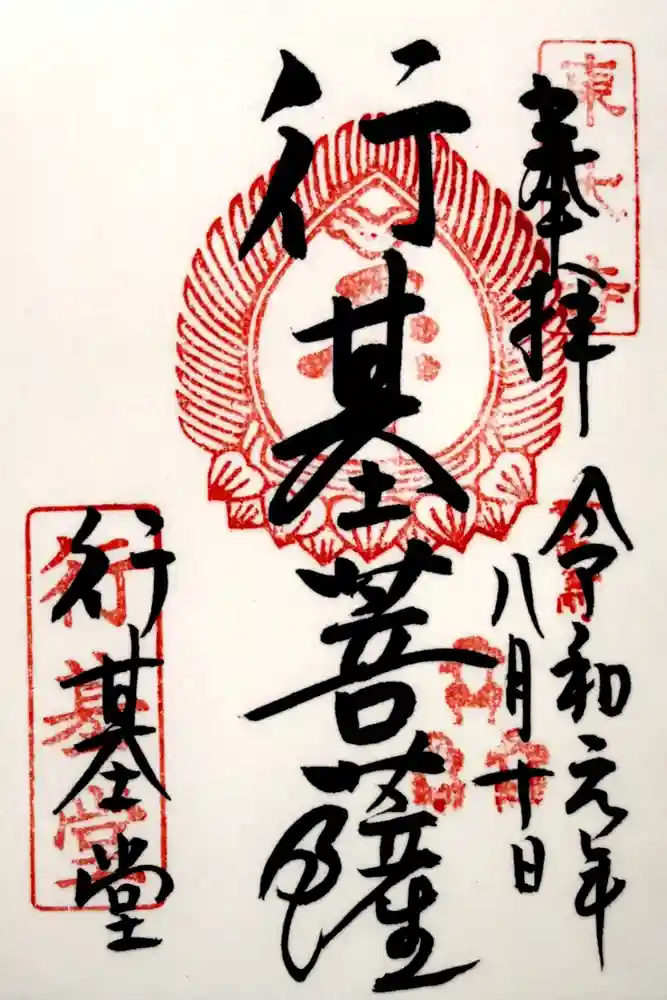 東大寺
奉拝
令和元年
八月十日
行基菩薩
行基堂
行基堂